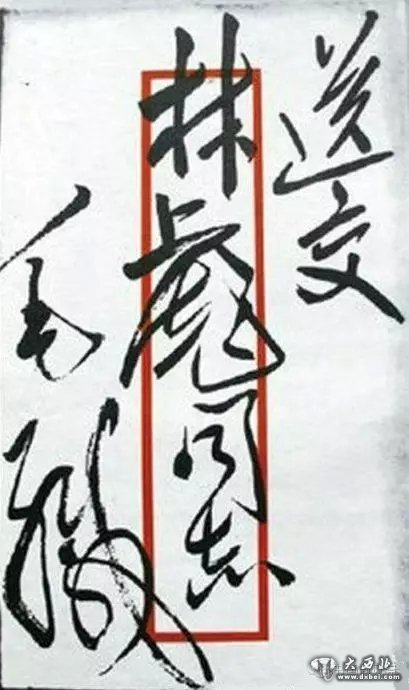 送交
林彪同志
毛缄
大西北
www.dxbei.com